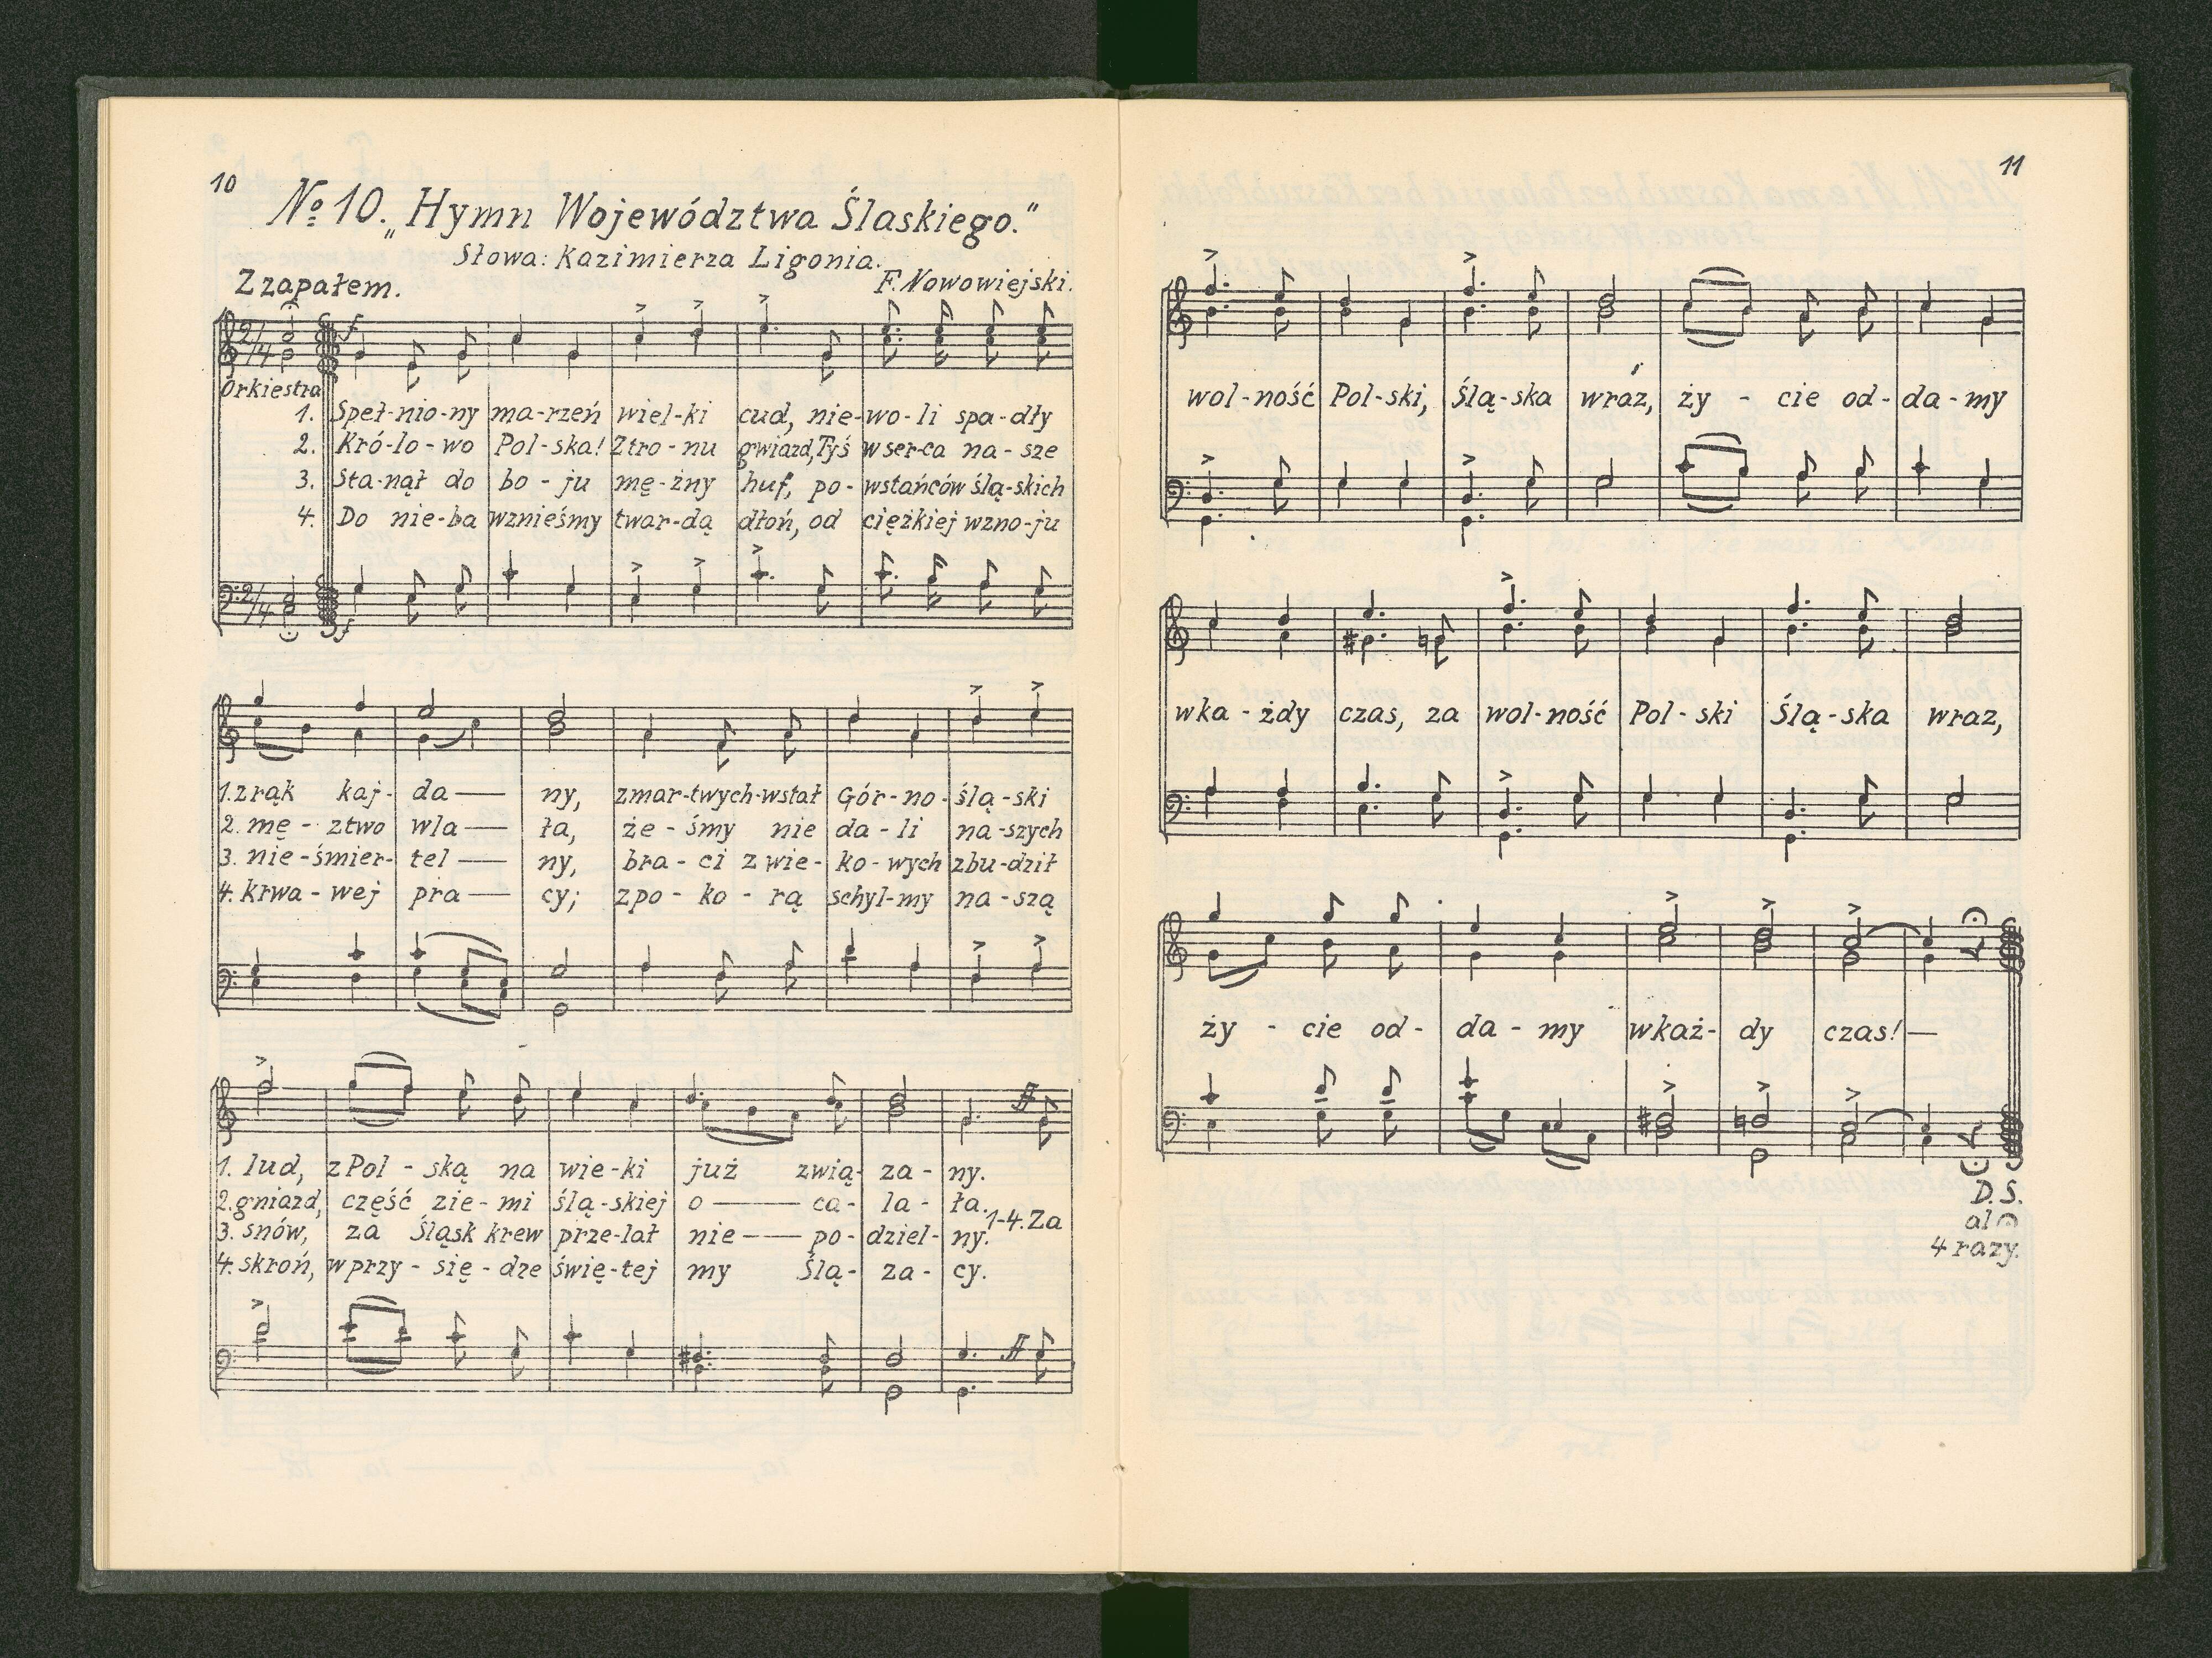 10
No 10. „Hymn Województwa Ślaskiego."
Słowa: Kazimierza Ligonia.
Z zapałem.
F. Nowowiejski.
f
Orkiestra
1. Speł-nio-ny ma-rzeń wiel-ki cud, nie-wo-li spa-dły
2. Kró-lo-wo Pol-ska! Z tro-nu gwiazd, Tyś w ser-ca na-sze
3. Sta-nął do bo-ju mę-żny huf, po-wstańców ślą-skich
4. Do nie-ba wznieśmy twar-dą dłoń, od ciężkiej wzno-ju
f
1. z rąk kaj-da— ny, zmar-twych-wstał Gór-no-ślą-ski
2. mę-ztwo wla— ła, że-śmy nie da-li na-szych
3. nie-śmier-tel— ny, bra-ci z wie-ko-wych zbu-dził
4. krwa-wej pra— cy; z po-ko-rą schyl-my na-szą
ff
1. lud, z Pol-ską na wie-ki już zwią-za-ny.
2. gniazd, część zie-mi ślą-skiej o— ca-la-ła.
1-4. Za
3. snów, za Śląsk krew prze-lał nie— po-dziel-ny.
4. skroń, w przy-się-dze świę-tej my Ślą-za-cy.
ff
11
wol-ność Pol-ski, Ślą-ska wraz, ży - cie od-da-my
wka-żdy czas, za wol-ność Pol-ski Ślą-ska wraz,
ży - cie od-da-my wkaż-dy czas!—
D. S.
al 𝄐
4 razy.